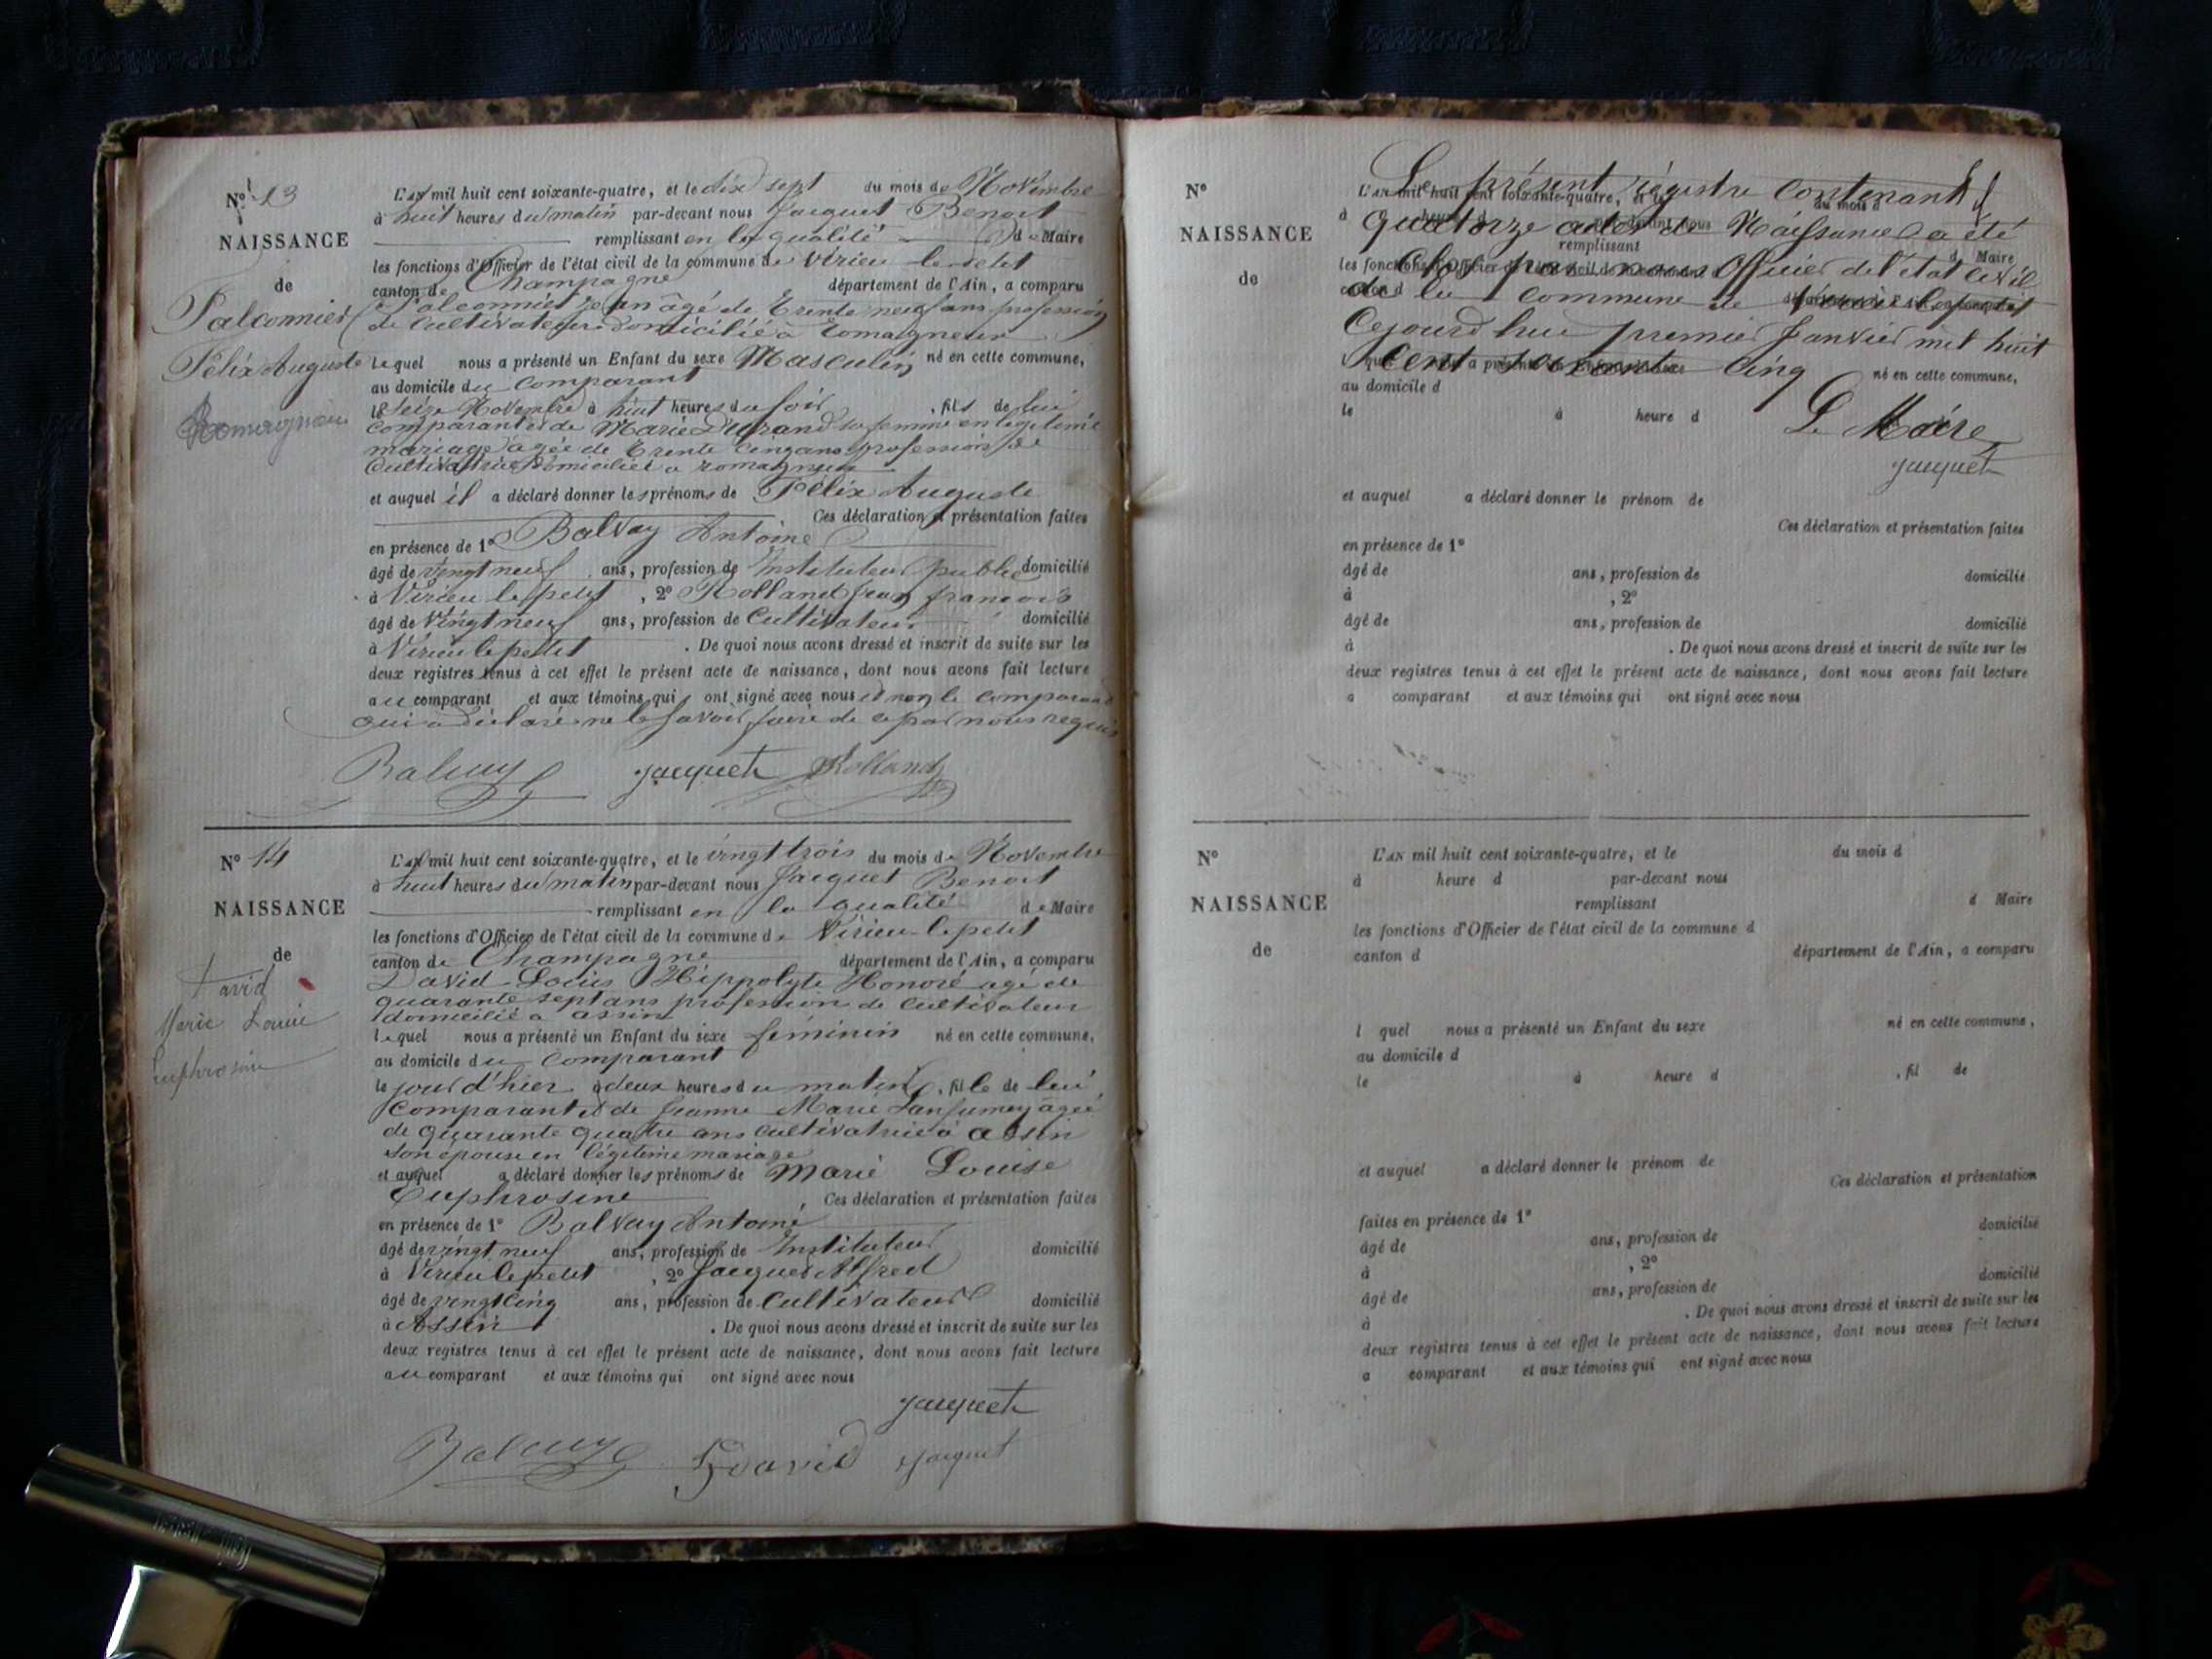 N° 13
NAISSANCE
de
Falconnier
Félix Auguste
Romagnieu
L'AN mil huit cent soixante-quatre, et le dix sept du mois de Novembre
à huit heures du matin par-devant nous Jacquet Benoit
remplissant en la qualité de Maire
les fonctions d'Officier de l'état civil de la commune de Virieu le petit
canton de Champagne département de l'Ain, a comparu
Falconnier Jean âgé de trente neuf ans profession
de Cultivateur domicilié à
lequel nous a présenté un Enfant du sexe Masculin né en cette commune,
au domicile du Comparant
le Seize Novembre à huit heures du soir, fils de lui
comparant et de Marie Durand sa femme en légitime
mariage âgée de trente cinq ans profession de
Cultivatrice domiciliée a
et auquel il a déclaré donner les prénoms de Félix Auguste
Ces déclaration et présentation faites
en présence de 1° Balvay Antoine
âgé de vingt neuf ans, profession de Instituteur public domicilié
à Virieu le petit, 2° Rolland Jean françois
âgé de vingt neuf ans, profession de Cultivateur domicilié
à Virieu le petit. De quoi nous avons dressé et inscrit de suite sur les
deux registres tenus à cet effet le présent acte de naissance, dont nous avons fait lecture
au comparant et aux témoins qui ont signé avec nous et non le comparant
qui a déclaré ne le savoir faire de ce par nous requis
Balvay Jacquet Rolland
N° 14
NAISSANCE
de
David
Marie Louise
Euphrosine
L'AN mil huit cent soixante-quatre, et le vingt trois du mois de Novembre
à huit heures du matin par-devant nous Jacquet Benoit
remplissant en la qualité de Maire
les fonctions d'Officier de l'état civil de la commune de Virieu-le petit
canton de Champagne département de l'Ain, a comparu
David Louis Hippolyte Honoré agé de
quarante sept ans profession de Cultivateur
domicilié a assin
lequel nous a présenté un Enfant du sexe féminin né en cette commune,
au domicile du Comparant
le jour d'hier à deux heures du matin, fille de lui
Comparant et de Jeanne Marie agée
de quarante quatre ans cultivatrice à assin
son epouse en légitime mariage
et auquel a déclaré donner les prénoms de Marie Louise
Euphrosine, Ces déclaration et présentation faites
en présence de 1° Balvay Antoine
âgé de vingt neuf ans, profession de Instituteur domicilié
à Virieu le petit, 2° Jacquet Alfred
âgé de vingt cinq ans, profession de Cultivateur domicilié
à Assin. De quoi nous avons dressé et inscrit de suite sur les
deux registres tenus à cet effet le présent acte de naissance, dont nous avons fait lecture
au comparant et aux témoins qui ont signé avec nous
Jacquet
Balvay David Jacquet
N°
NAISSANCE
de
Le présent régistre contenant
quatorze actes de Naissance a été
clos par nous Officier de l'état Civil
de la commune de Virieu le petit
Cejourd'hui premier Janvier mil huit
cent soixante cinq
Le Maire
Jacquet
L'AN mil huit cent soixante-quatre, et le du mois d
à heure d par-devant nous
remplissant d Maire
les fonctions d'Officier de l'état civil de la commune d
canton d département de l'Ain, a comparu
l quel nous a présenté un Enfant du sexe né en cette commune,
au domicile d
le à heure d
et auquel a déclaré donner le prénom de
Ces déclaration et présentation faites
en présence de 1°
âgé de ans, profession de domicilié
à , 2°
âgé de ans, profession de domicilié
à . De quoi nous avons dressé et inscrit de suite sur les
deux registres tenus à cet effet le présent acte de naissance, dont nous avons fait lecture
a comparant et aux témoins qui ont signé avec nous
N°
NAISSANCE
de
L'AN mil huit cent soixante-quatre, et le du mois d
à heure d par-devant nous
remplissant d Maire
les fonctions d'Officier de l'état civil de la commune d
canton d département de l'Ain, a comparu
l quel nous a présenté un Enfant du sexe né en cette commune,
au domicile d
le à heure d , fil de
et auquel a déclaré donner le prénom de
Ces déclaration et présentation
faites en présence de 1°
âgé de ans, profession de domicilié
à , 2°
âgé de ans, profession de domicilié
à . De quoi nous avons dressé et inscrit de suite sur les
deux registres tenus à cet effet le présent acte de naissance, dont nous avons fait lecture
a comparant et aux témoins qui ont signé avec nous